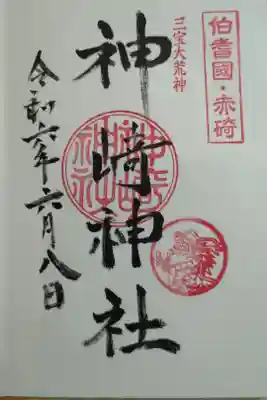 伯耆國・赤碕
三宝大荒神
神﨑神社
令和六年六月八日